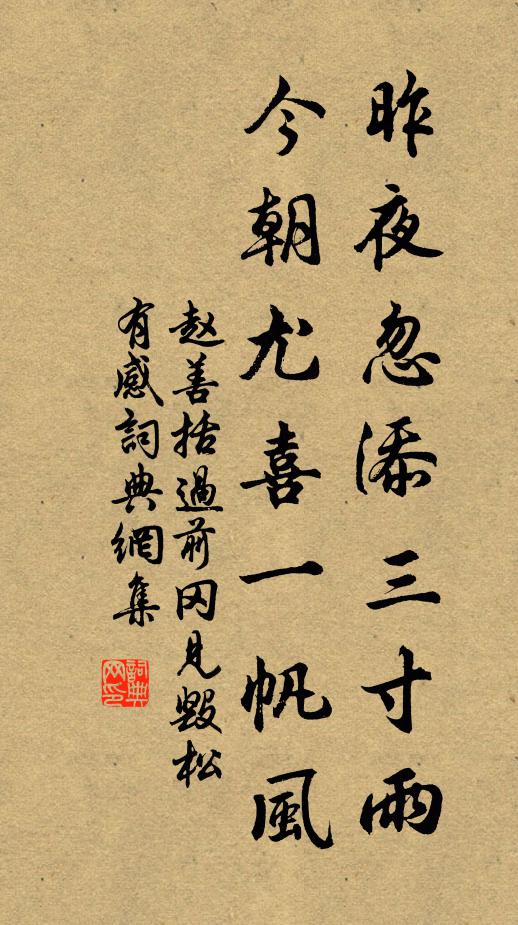 昨夜忽添三寸雨
今朝尤喜一帆風
赵善括過前冈見毀松
有感詞典網集
詞典网印